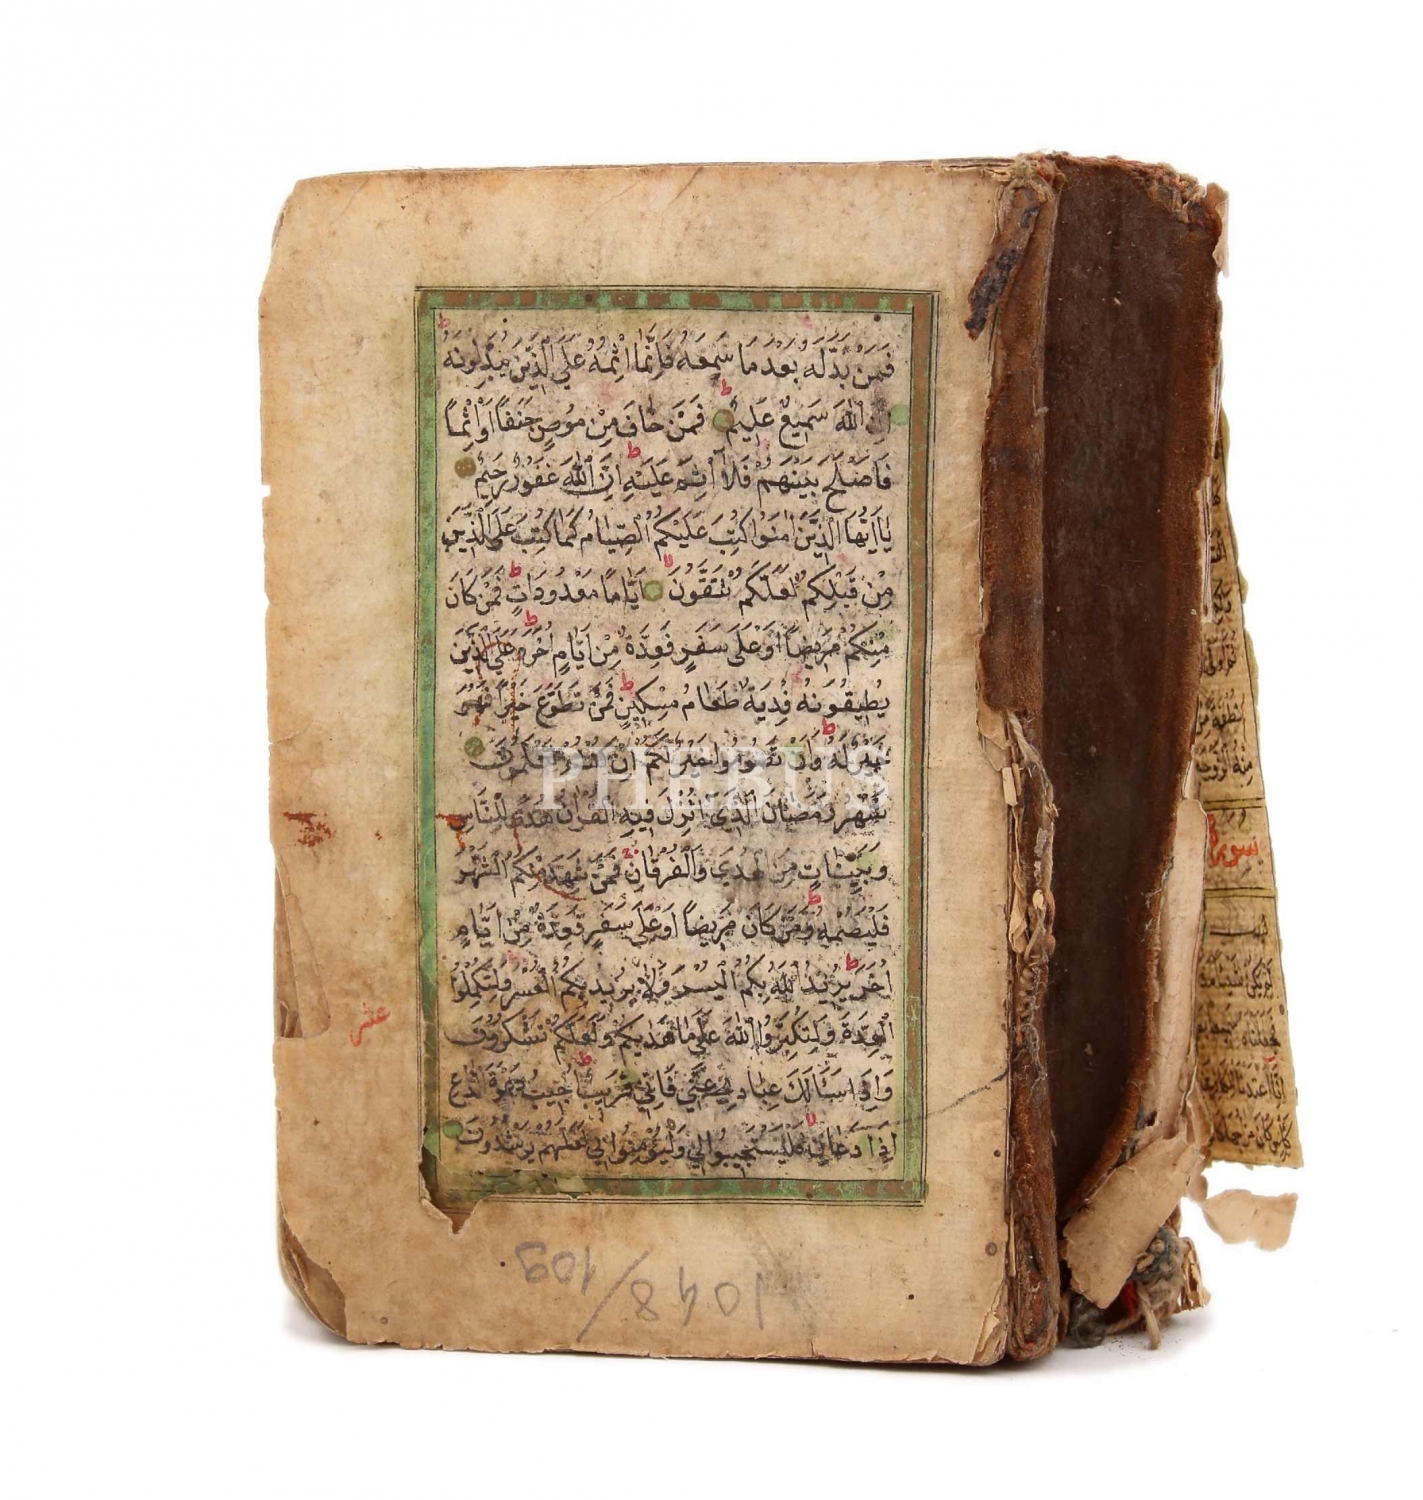 فَمَنْ بَدَّلَهُ بَعْدَ مَا سَمِعَهُ فَاِنَّمَا اِثْمُهُ عَلَى الَّذِينَ يُبَدِّلُونَهُ
اِنَّ اللهَ سَمِيعٌ عَلِيمٌ فَمَنْ خَافَ مِنْ مُوصٍ جَنَفًا اَوْ اِثْمًا
فَاَصْلَحَ بَيْنَهُمْ فَلَا اِثْمَ عَلَيْهِ اِنَّ اللهَ غَفُورٌ رَحِيمٌ
يَا اَيُّهَا الَّذِينَ اٰمَنُوا كُتِبَ عَلَيْكُمُ الصِّيَامُ كَمَا كُتِبَ عَلَى الَّذِينَ
مِنْ قَبْلِكُمْ لَعَلَّكُمْ تَتَّقُونَ اَيَّامًا مَعْدُودَاتٍ فَمَنْ كَانَ
مِنْكُمْ مَرِيضًا اَوْ عَلَى سَفَرٍ فَعِدَّةٌ مِنْ اَيَّامٍ اُخَرَ وَعَلَى الَّذِينَ
يُطِيقُونَهُ فِدْيَةٌ طَعَامُ مِسْكِينٍ فَمَنْ تَطَوَّعَ خَيْرًا فَهُوَ
خَيْرٌ لَهُ وَاَنْ تَصُومُوا خَيْرٌ لَكُمْ اِنْ كُنْتُمْ تَعْلَمُونَ
شَهْرُ رَمَضَانَ الَّذِي اُنْزِلَ فِيهِ الْقُرْاٰنُ هُدًى لِلنَّاسِ
وَبَيِّنَاتٍ مِنَ الْهُدَى وَالْفُرْقَانِ فَمَنْ شَهِدَ مِنْكُمُ الشَّهْرَ
فَلْيَصُمْهُ وَمَنْ كَانَ مَرِيضًا اَوْ عَلَى سَفَرٍ فَعِدَّةٌ مِنْ اَيَّامٍ
اُخَرَ يُرِيدُ اللهُ بِكُمُ الْيُسْرَ وَلَا يُرِيدُ بِكُمُ الْعُسْرَ وَلِتُكْمِلُوا
الْعِدَّةَ وَلِتُكَبِّرُوا اللهَ عَلَى مَا هَدٰيكُمْ وَلَعَلَّكُمْ تَشْكُرُونَ
وَاِذَا سَاَلَكَ عِبَادِي عَنِّي فَاِنِّي قَرِيبٌ اُجِيبُ دَعْوَةَ الدَّاعِ
اِذَا دَعَانِ فَلْيَسْتَجِيبُوا لِي وَلْيُؤْمِنُوا بِي لَعَلَّهُمْ يَرْشُدُونَ
عشر
1048/109
PHEBUS
سورة